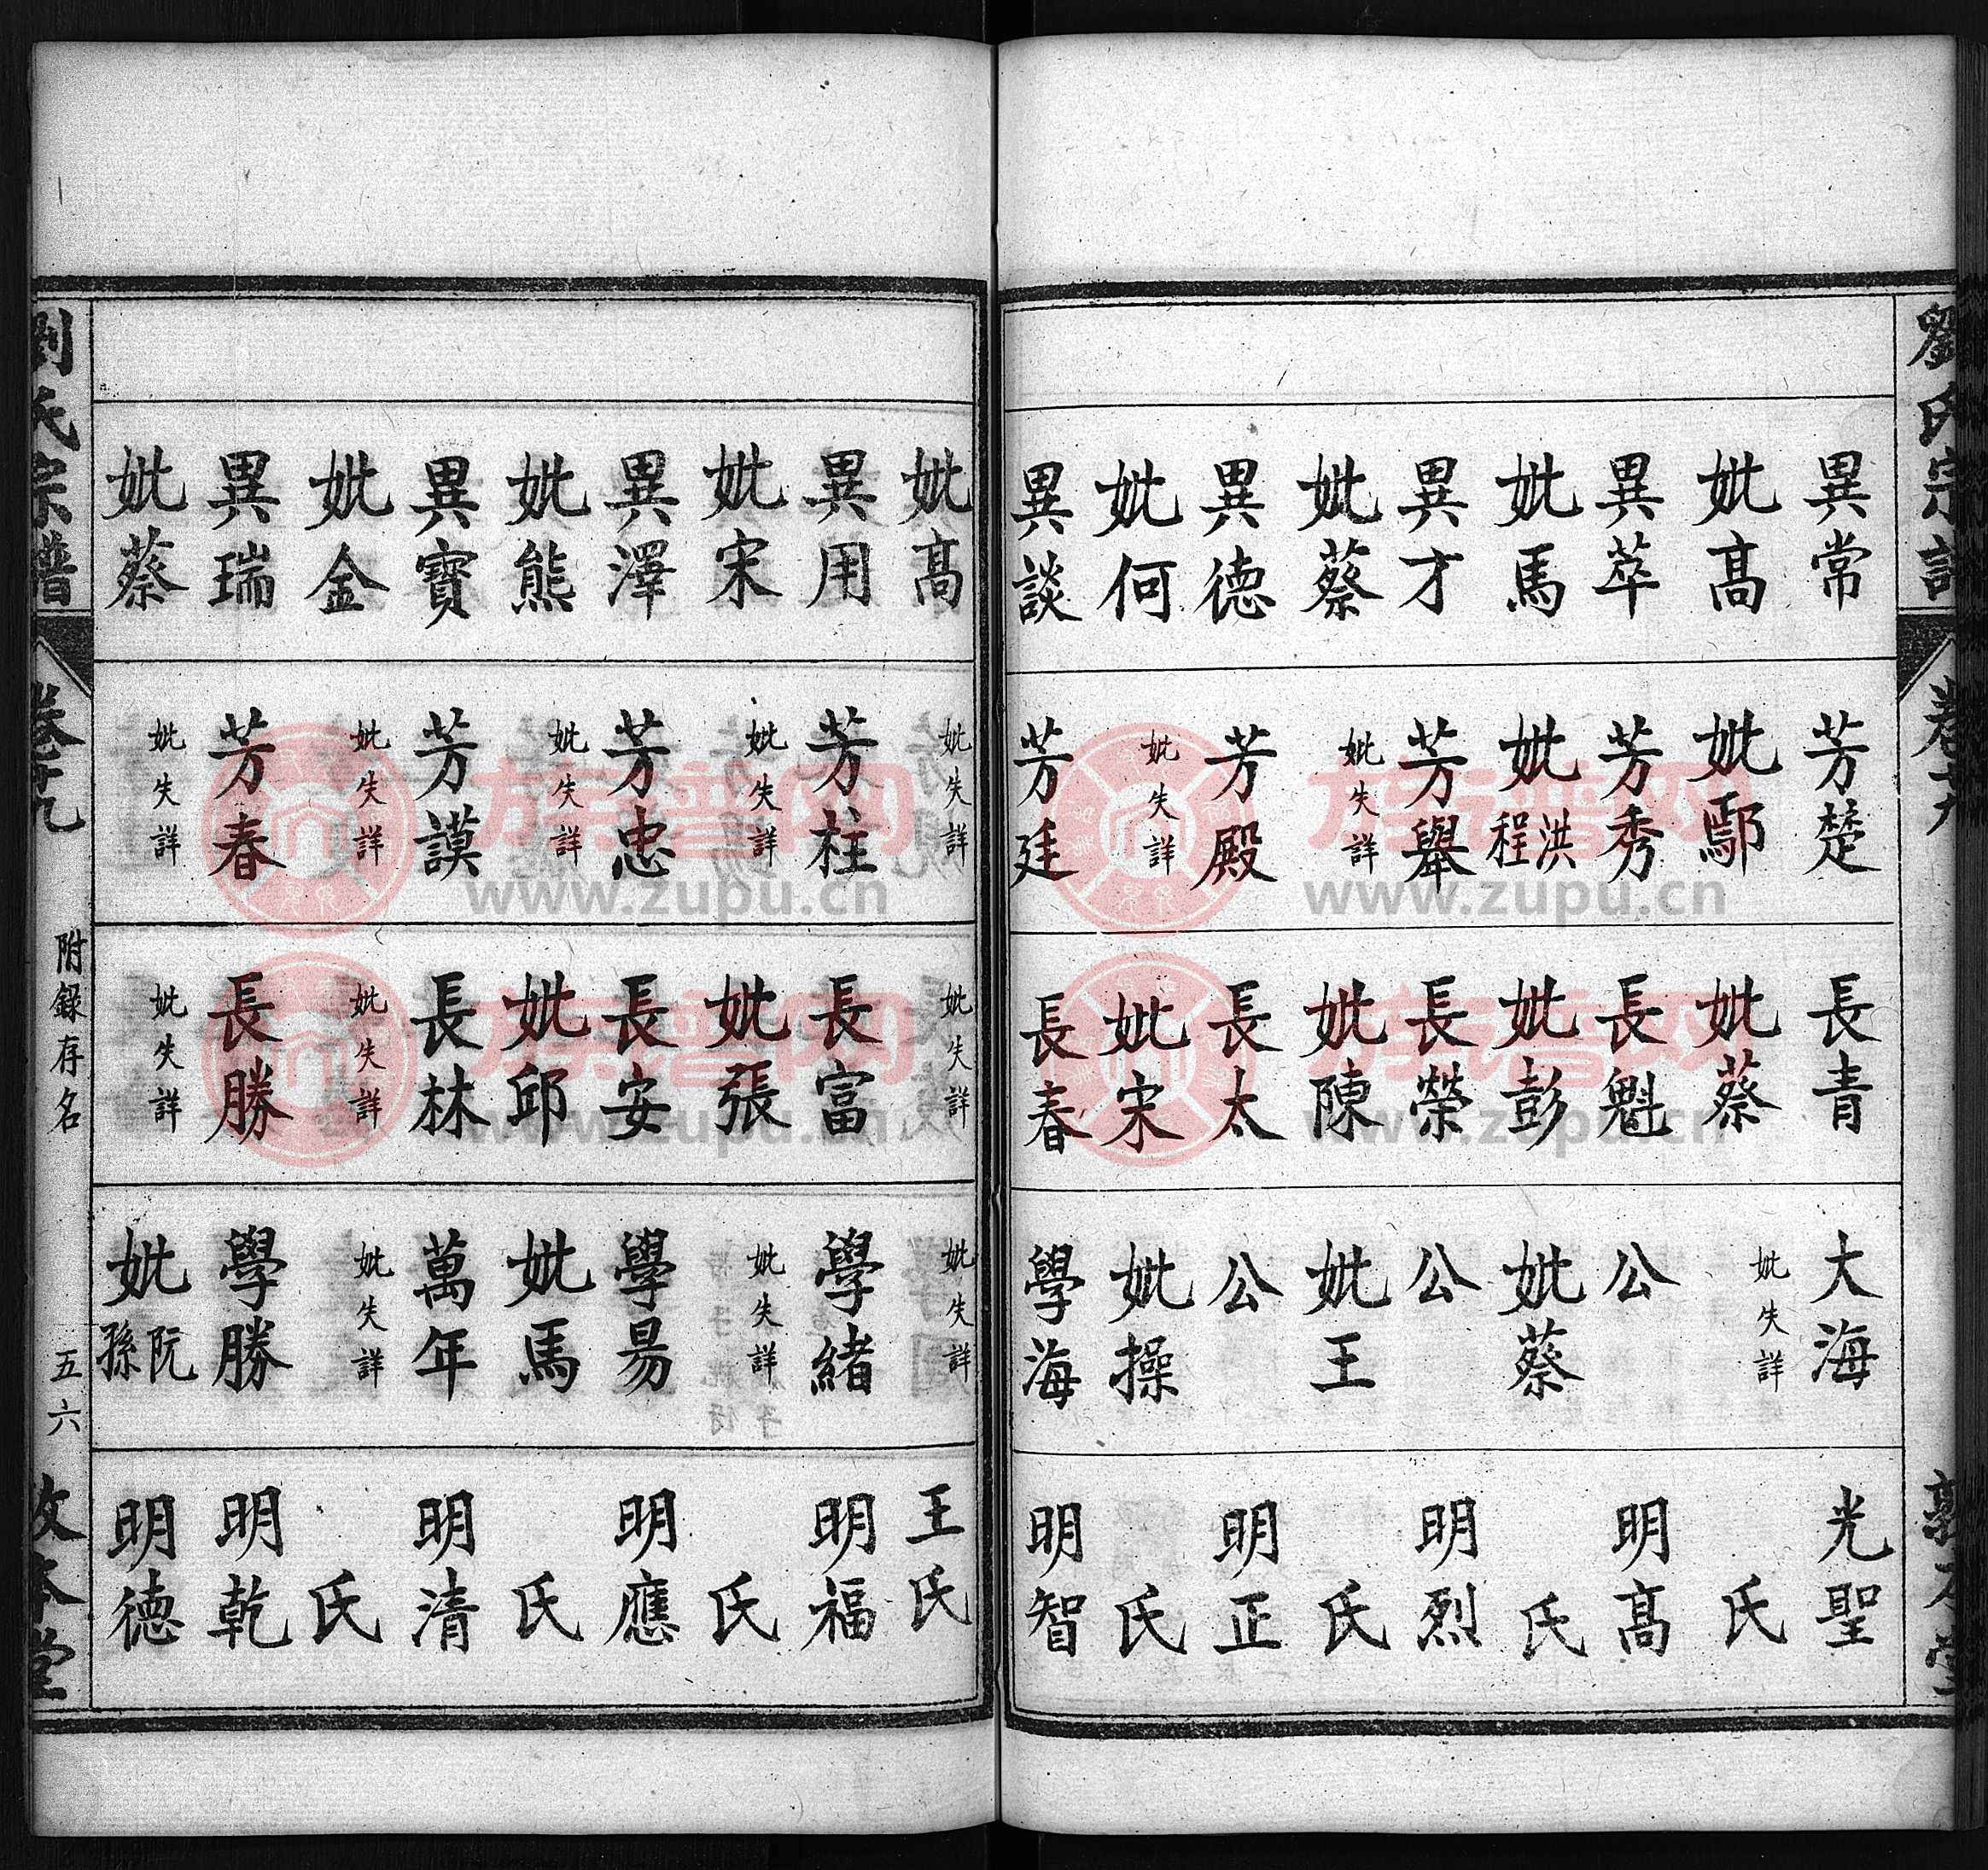 劉氏宗譜
卷十九
敦本堂
異常
妣高
異萃
妣馬
異才
妣蔡
異德
妣何
異談
芳楚
妣鄢
芳秀
妣洪程
芳舉
妣失詳
芳殿
妣失詳
芳廷
長青
妣蔡
長魁
妣彭
長榮
妣陳
長太
妣宋
長春
大海
妣失詳
公
妣蔡
公
妣王
公
妣操
學海
光聖
氏
明高
氏
明烈
氏
明正
氏
明智
妣高
異用
妣宋
異澤
妣熊
異寶
妣金
異瑞
妣蔡
妣失詳
芳柱
妣失詳
芳忠
妣失詳
芳謨
妣失詳
芳春
妣失詳
妣失詳
長富
妣張
長安
妣邱
長林
妣失詳
長勝
妣失詳
妣失詳
學緒
妣失詳
學易
妣馬
萬年
妣失詳
學勝
妣阮孫
王氏
明福
氏
明應
氏
明清
氏
明乾
明德
劉氏宗譜
卷十九
附錄存名
五六
敦本堂
族谱网
www.zupu.cn
族谱网
www.zupu.cn
族谱网
www.zupu.cn
族谱网
www.zupu.cn